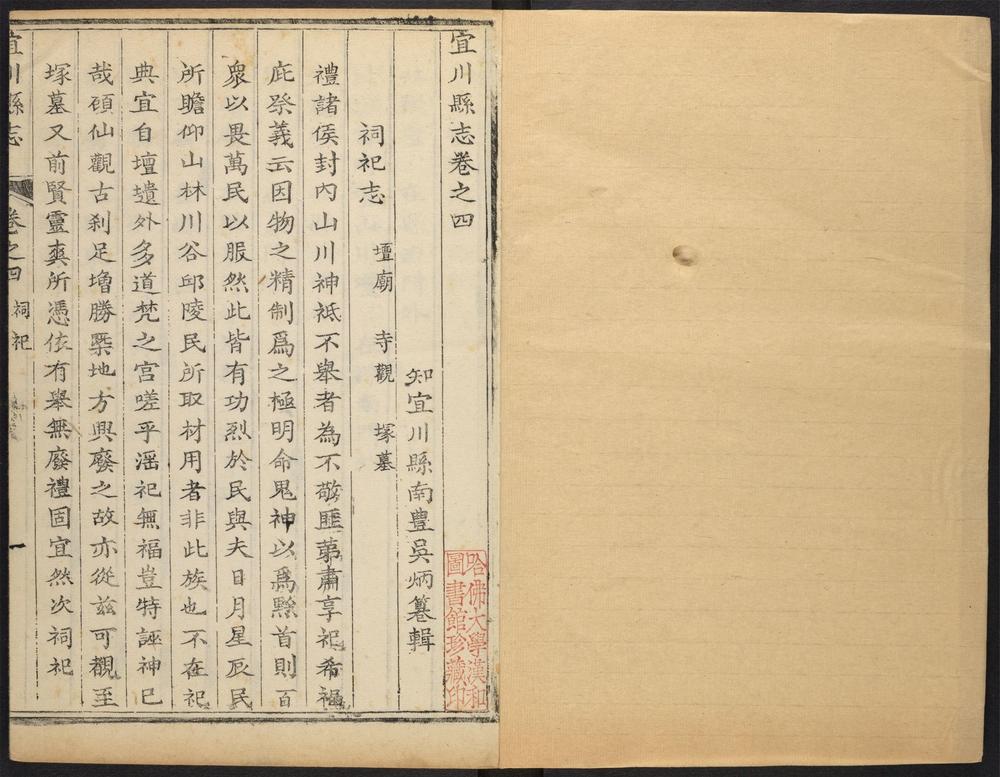 宜川縣志卷之四
知宜川縣南豐吳炳纂輯
祠祀志 壇廟 寺觀 塚墓
禮諸侯封內山川神祗不舉者為不敬匪第肅享祀希福
庇祭義云因物之精制爲之極明命鬼神以爲黔首則百
衆以畏萬民以服然此皆有功烈於民與夫日月星辰民
所瞻仰山林川谷邱陵民所取材用者非此族也不在祀
典宜自壇壝外多道梵之宮嗟乎滛祀無福豈特誣神已
哉碩仙觀古刹足增勝槩地方興廢之故亦從兹可覩至
塚墓又前賢靈爽所憑依有舉無廢禮固宜然次祠祀
宜川縣志 卷之四 祠祀 一
哈佛大學漢和
圖書館珍藏印